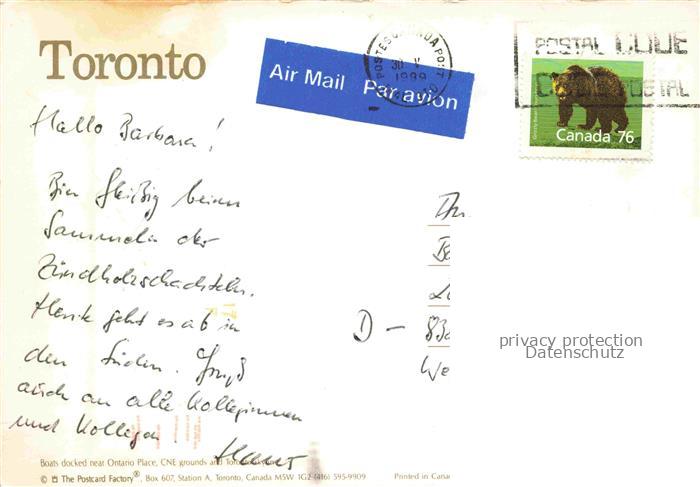 Toronto
Air Mail Par avion
POSTES CANADA POST
30 V
1989
POSTAL CODE
CODE POSTAL
Grizzly Bear
Canada 76
Hallo Barbara!
Bin fleißig beim
Sammeln der
Zündholzschachteln.
Heute geht es ab in
den Süden. Gruß
auch an alle Kolleginnen
und Kollegen
D - 
We
privacy protection
Datenschutz
Boats docked near Ontario Place, CNE grounds and
© The Postcard Factory®, Box 607, Station A, Toronto, Canada M5W 1G2 (416) 595-9909 Printed in Cana